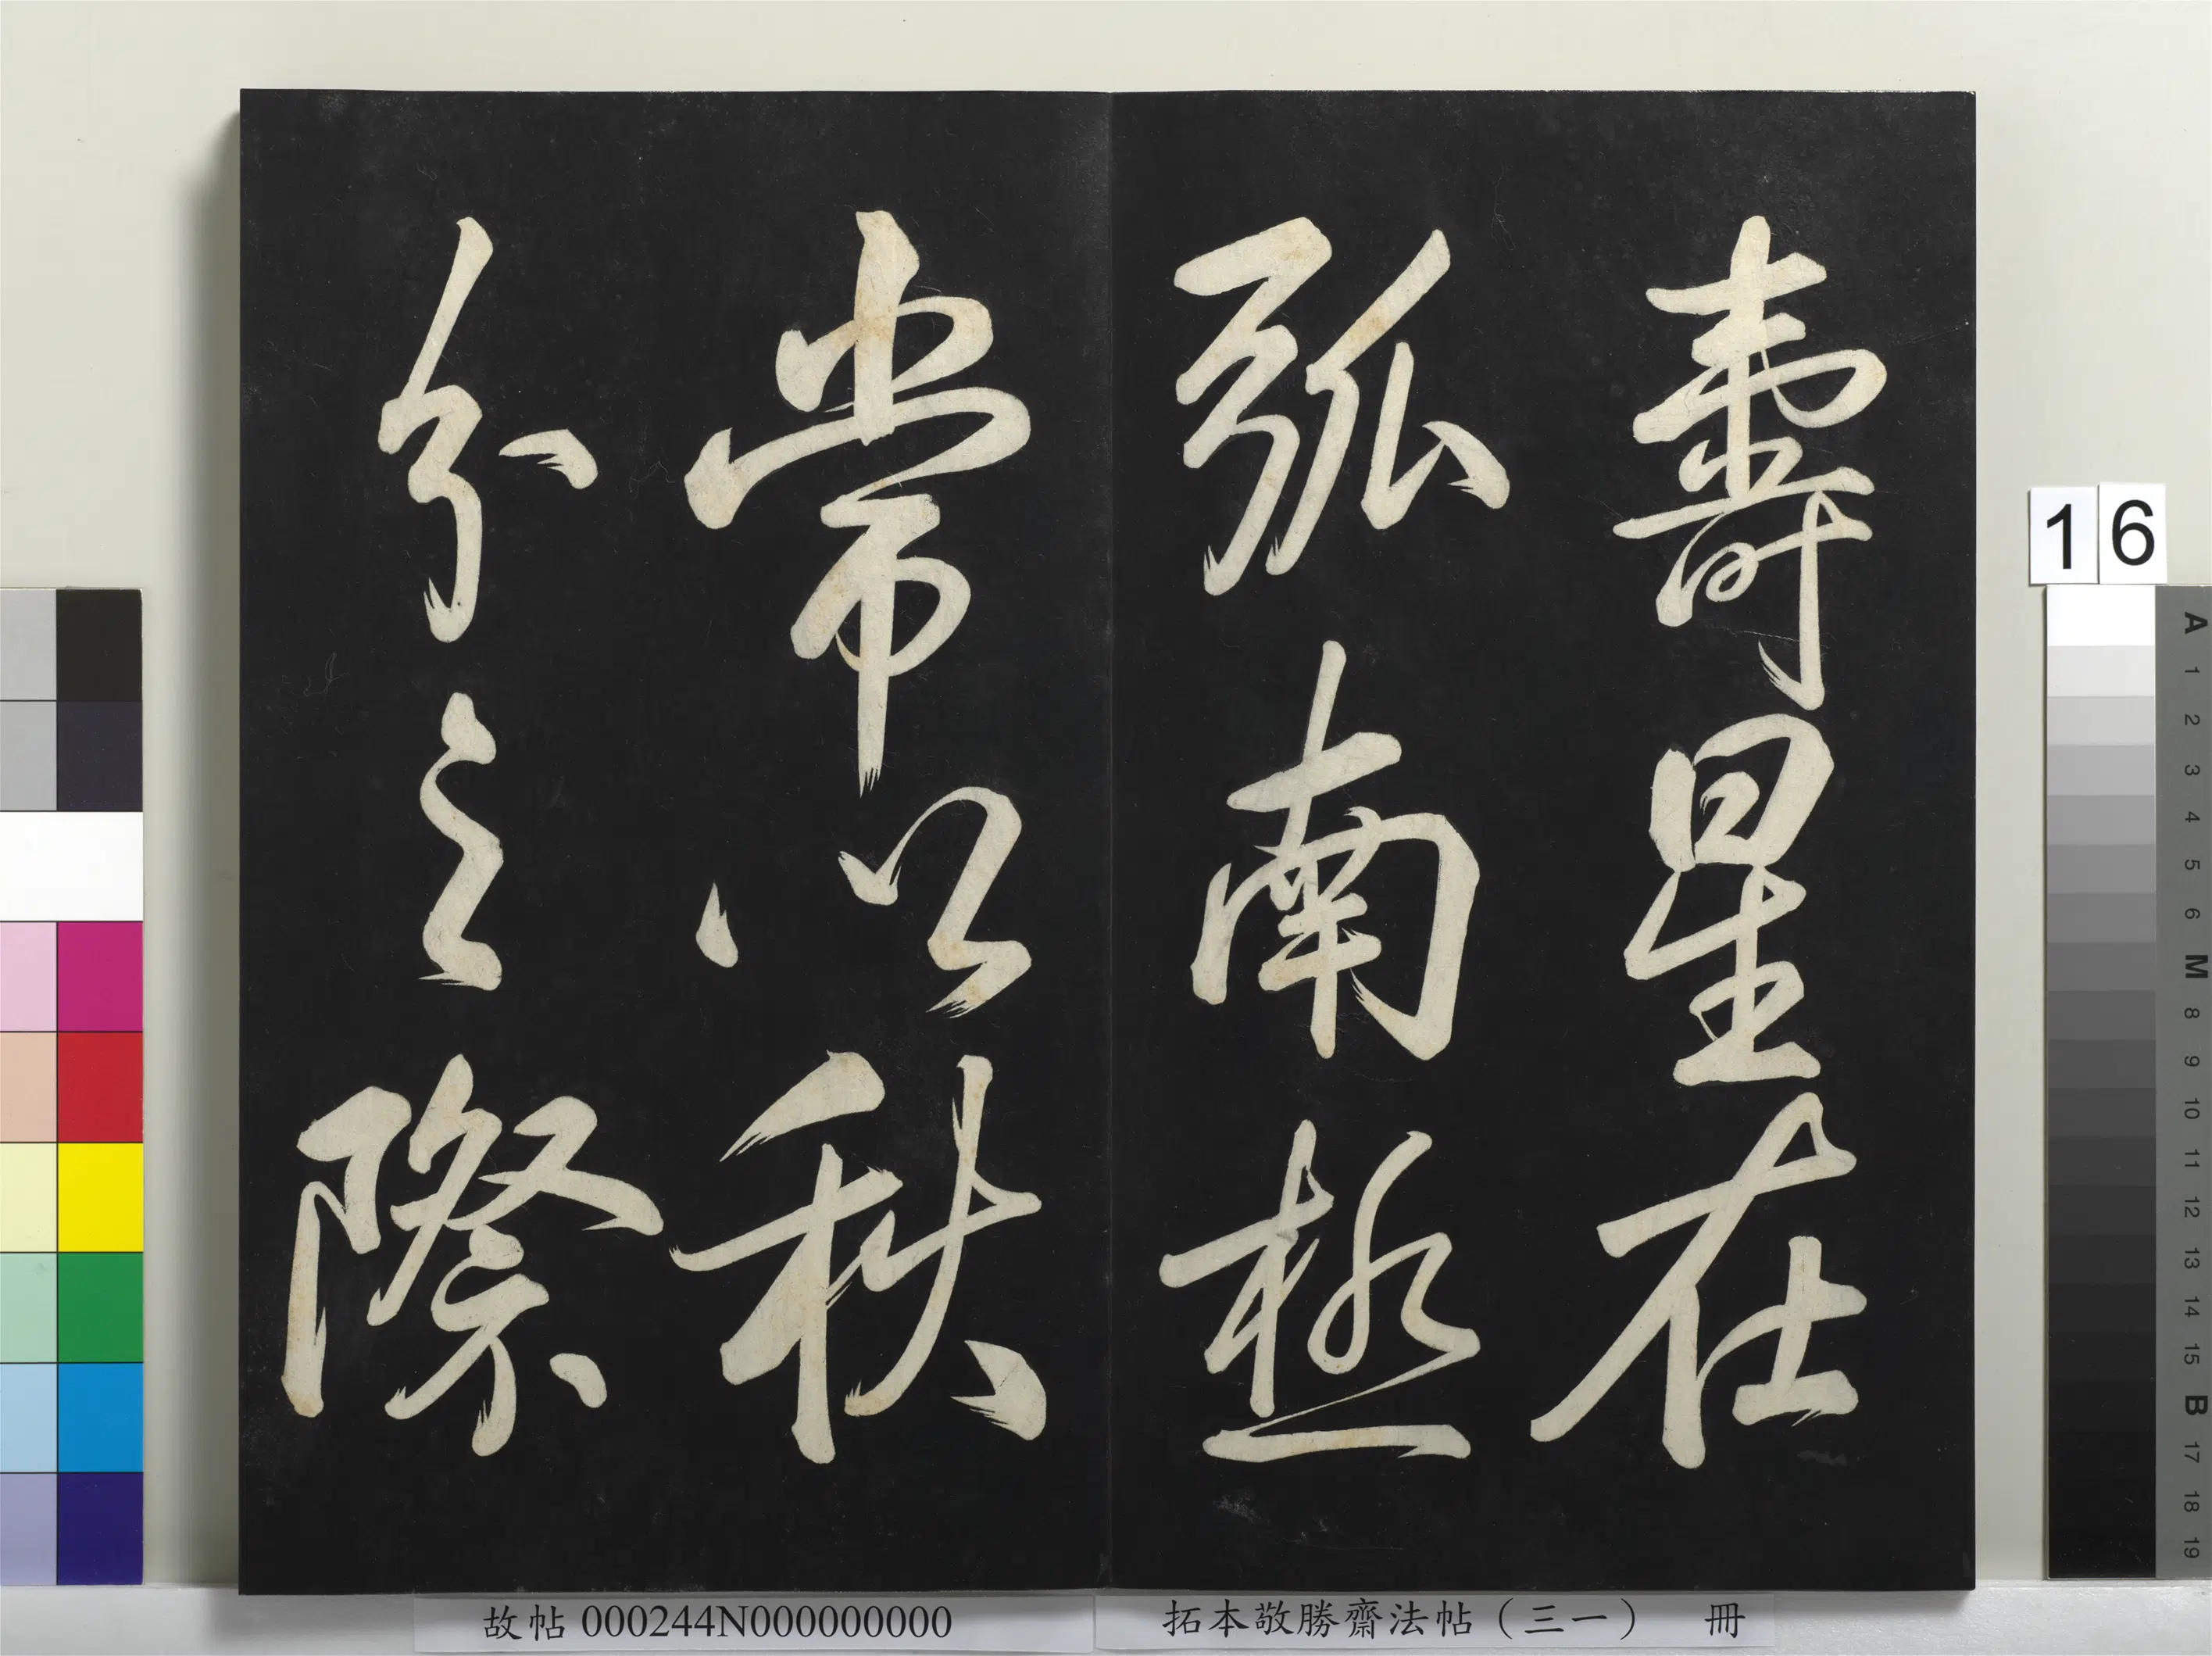 壽星在
弧南極
常以秋
分之際
16
A
1
2
3
4
5
6
M
8
9
10
11
12
13
14
15
B
17
18
19
故帖 000244N000000000
拓本敬勝齋法帖（三一） 冊